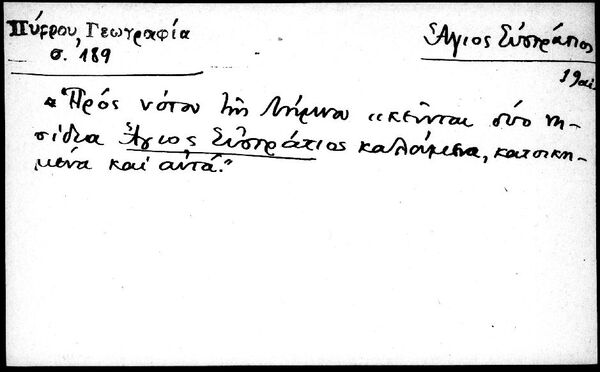 Πύρρου, Γεωγραφία
σ. 189
Ἅγιος Εὐστράτιος
19 αἰ.
"Πρὸς νότον τῆς Λήμνου "κεῖνται δύο νη-
σίδια Ἅγιος Εὐστράτιος καλούμενα, κατοικη-
μένα καὶ αὐτά."